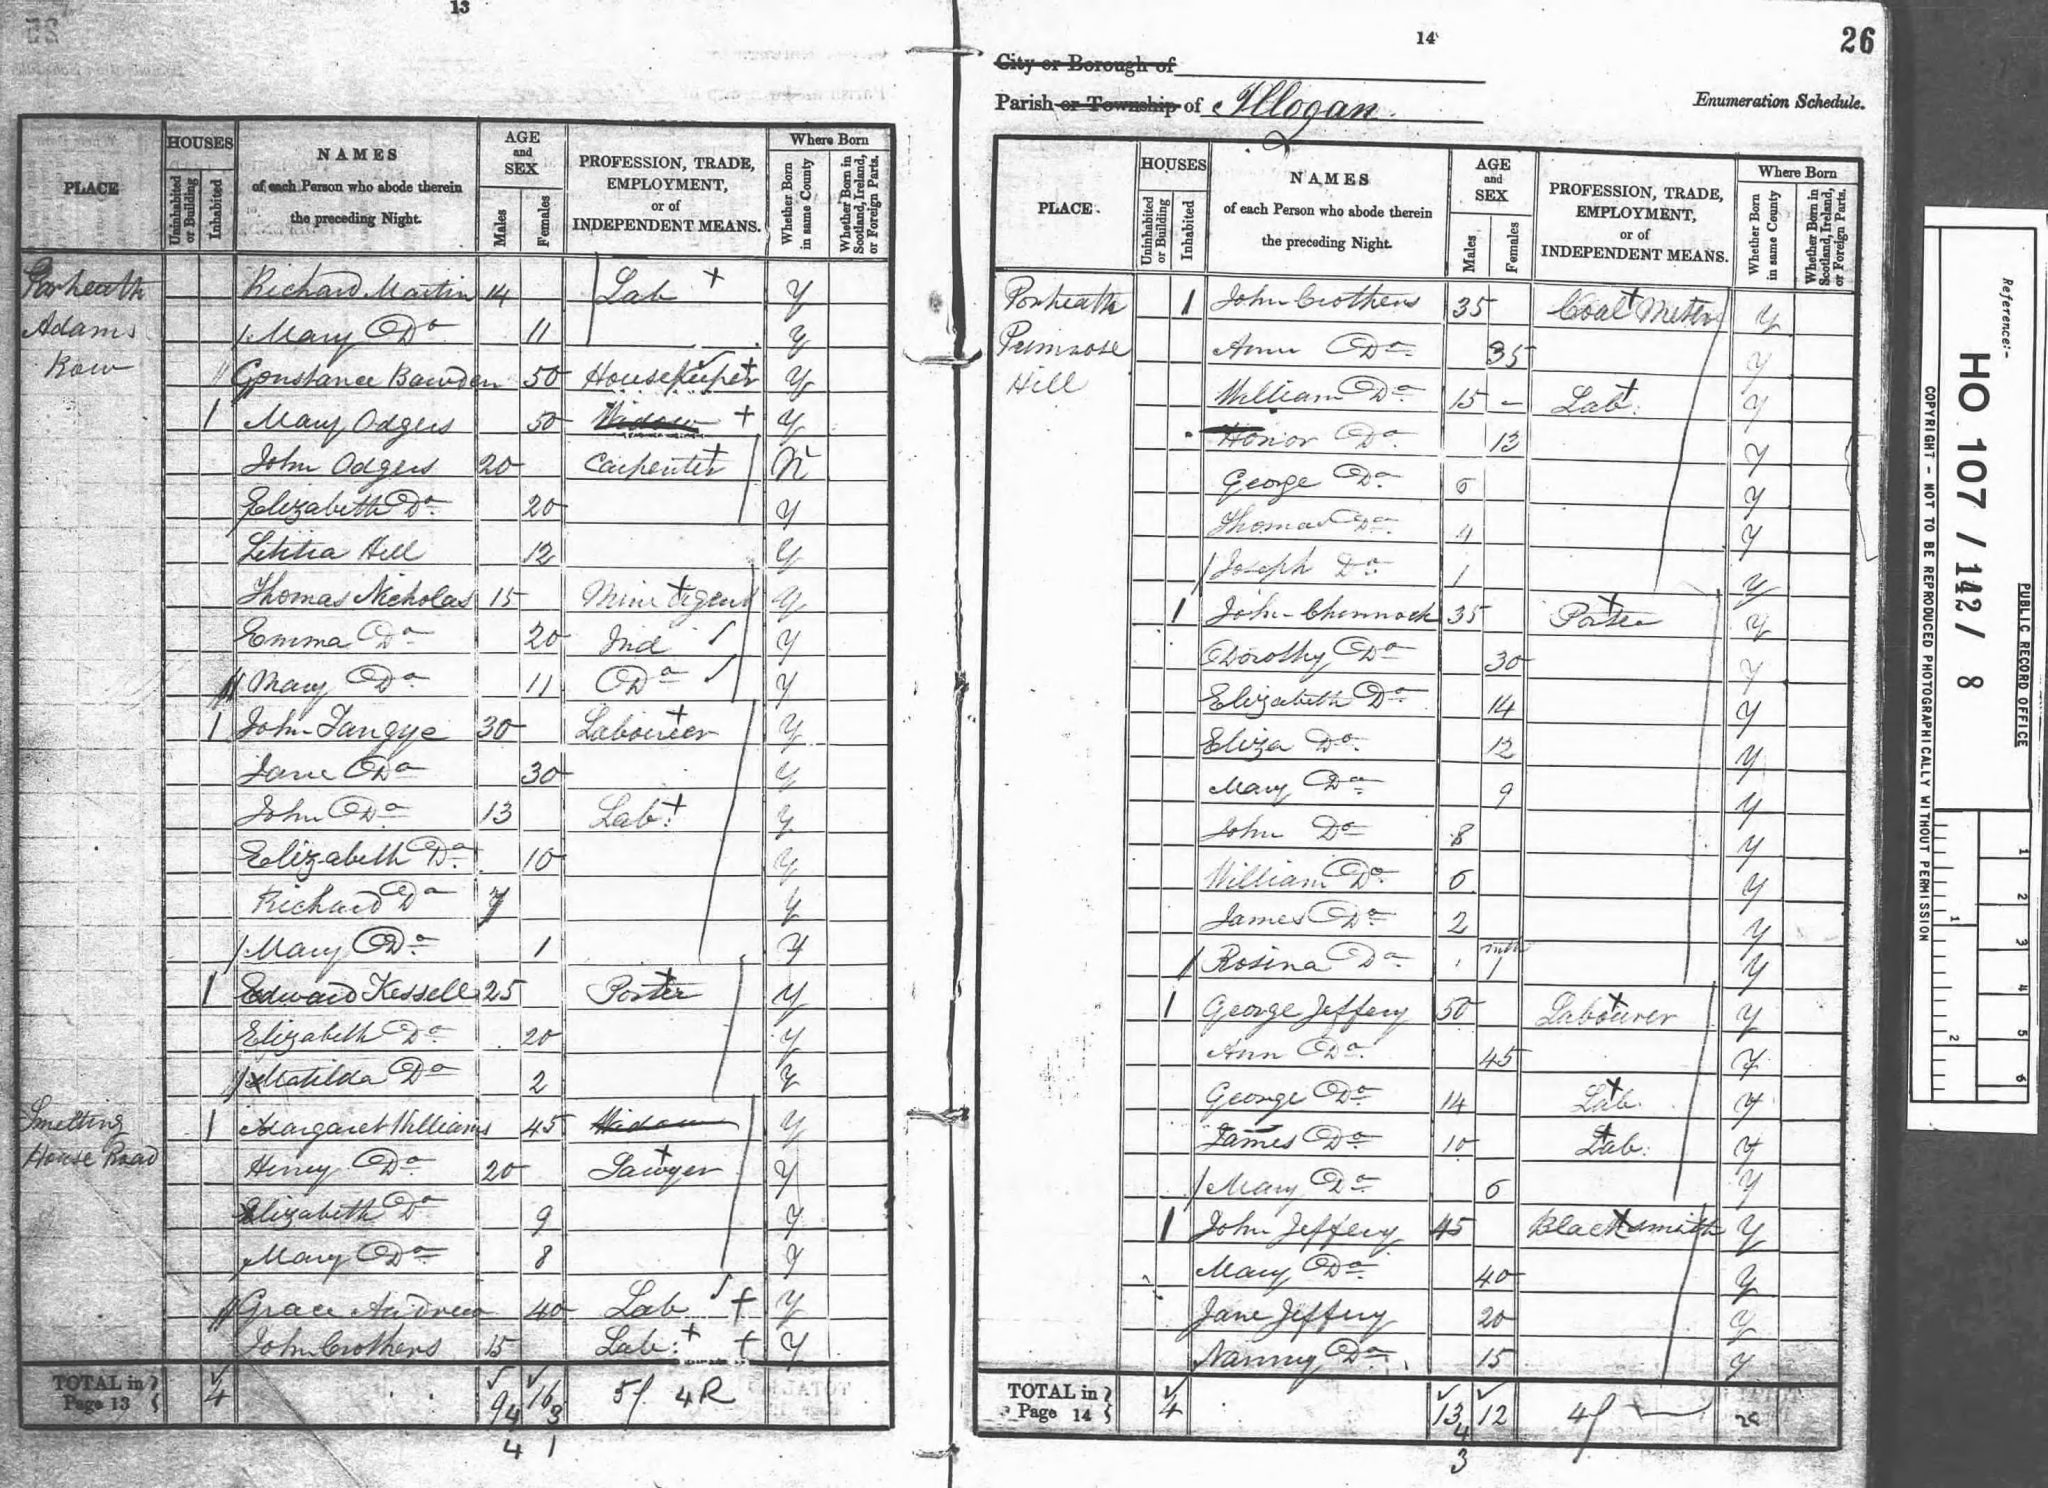 13
PLACE
HOUSES
Uninhabited or Building
Inhabited
NAMES
of each Person who abode therein
the preceding Night.
AGE
and
SEX
Males
Females
PROFESSION, TRADE,
EMPLOYMENT,
or of
INDEPENDENT MEANS.
Where Born
Whether Born in same County
Whether Born in Scotland, Ireland, or Foreign Parts.
Porheath Richard Martin 14 Lab Y
Adams Mary Do 11 Y
Row Constance Bawden 50 Housekeeper Y
1 Mary Odgers 50 Widow Y
John Odgers 20 Carpenter N
Elizabeth Do 20 Y
Letitia Hill 12 Y
Thomas Nicholas 15 Mine Agent Y
Emma Do 20 Ind Y
Mary Do 11 Do Y
1 John Tangye 30 Labourer Y
Jane Do 30 Y
John Do 13 Lab: Y
Elizabeth Do 10 Y
Richard Do 7 Y
Mary Do 1 Y
1 Edward Kessell 25 Porter Y
Elizabeth Do 20 Y
Matilda Do 2 Y
Smelting 1 Margaret Williams 45 Widow Y
House Road Henry Do 20 Sawyer Y
Elizabeth Do 9 Y
Mary Do 8 Y
Grace Andrew 40 Lab Y
John Crothers 15 Lab: Y
TOTAL in Page 13 4 9 16 5f 4R
4 3
4 1
14
26
City or Borough of
Parish or Township of Illogan
Enumeration Schedule.
PLACE.
HOUSES
Uninhabited or Building
Inhabited
NAMES
of each Person who abode therein
the preceding Night.
AGE
and
SEX
Males
Females
PROFESSION, TRADE,
EMPLOYMENT,
or of
INDEPENDENT MEANS.
Where Born
Whether Born in same County
Whether Born in Scotland, Ireland, or Foreign Parts.
Porheath 1 John Crothers 35 Coal Meter Y
Primrose Ann Do 35 Y
Hill William Do 15 - Lab: Y
Honor Do 13 Y
George Do 6 Y
Thomas Do 4 Y
Joseph Do 1 Y
1 John Chennock 35 Porter Y
Dorothy Do 30 Y
Elizabeth Do 14 Y
Eliza Do 12 Y
Mary Do 9 Y
John Do 8 Y
William Do 6 Y
James Do 2 Y
Rosina Do mth 1 Y
1 George Jeffery 50 Labourer Y
Ann Do 45 Y
George Do 14 Lab. Y
James Do 10 Lab: Y
Mary Do 6 Y
1 John Jeffery 45 Blacksmith Y
Mary Do 40 Y
Jane Jeffery 20 Y
Nanny Do 15 Y
TOTAL in Page 14 4 13 12 4f
4
3
Reference:-
HO 107 / 142 / 8
PUBLIC RECORD OFFICE
COPYRIGHT - NOT TO BE REPRODUCED PHOTOGRAPHICALLY WITHOUT PERMISSION
1 2 3 4 5 6
1 2